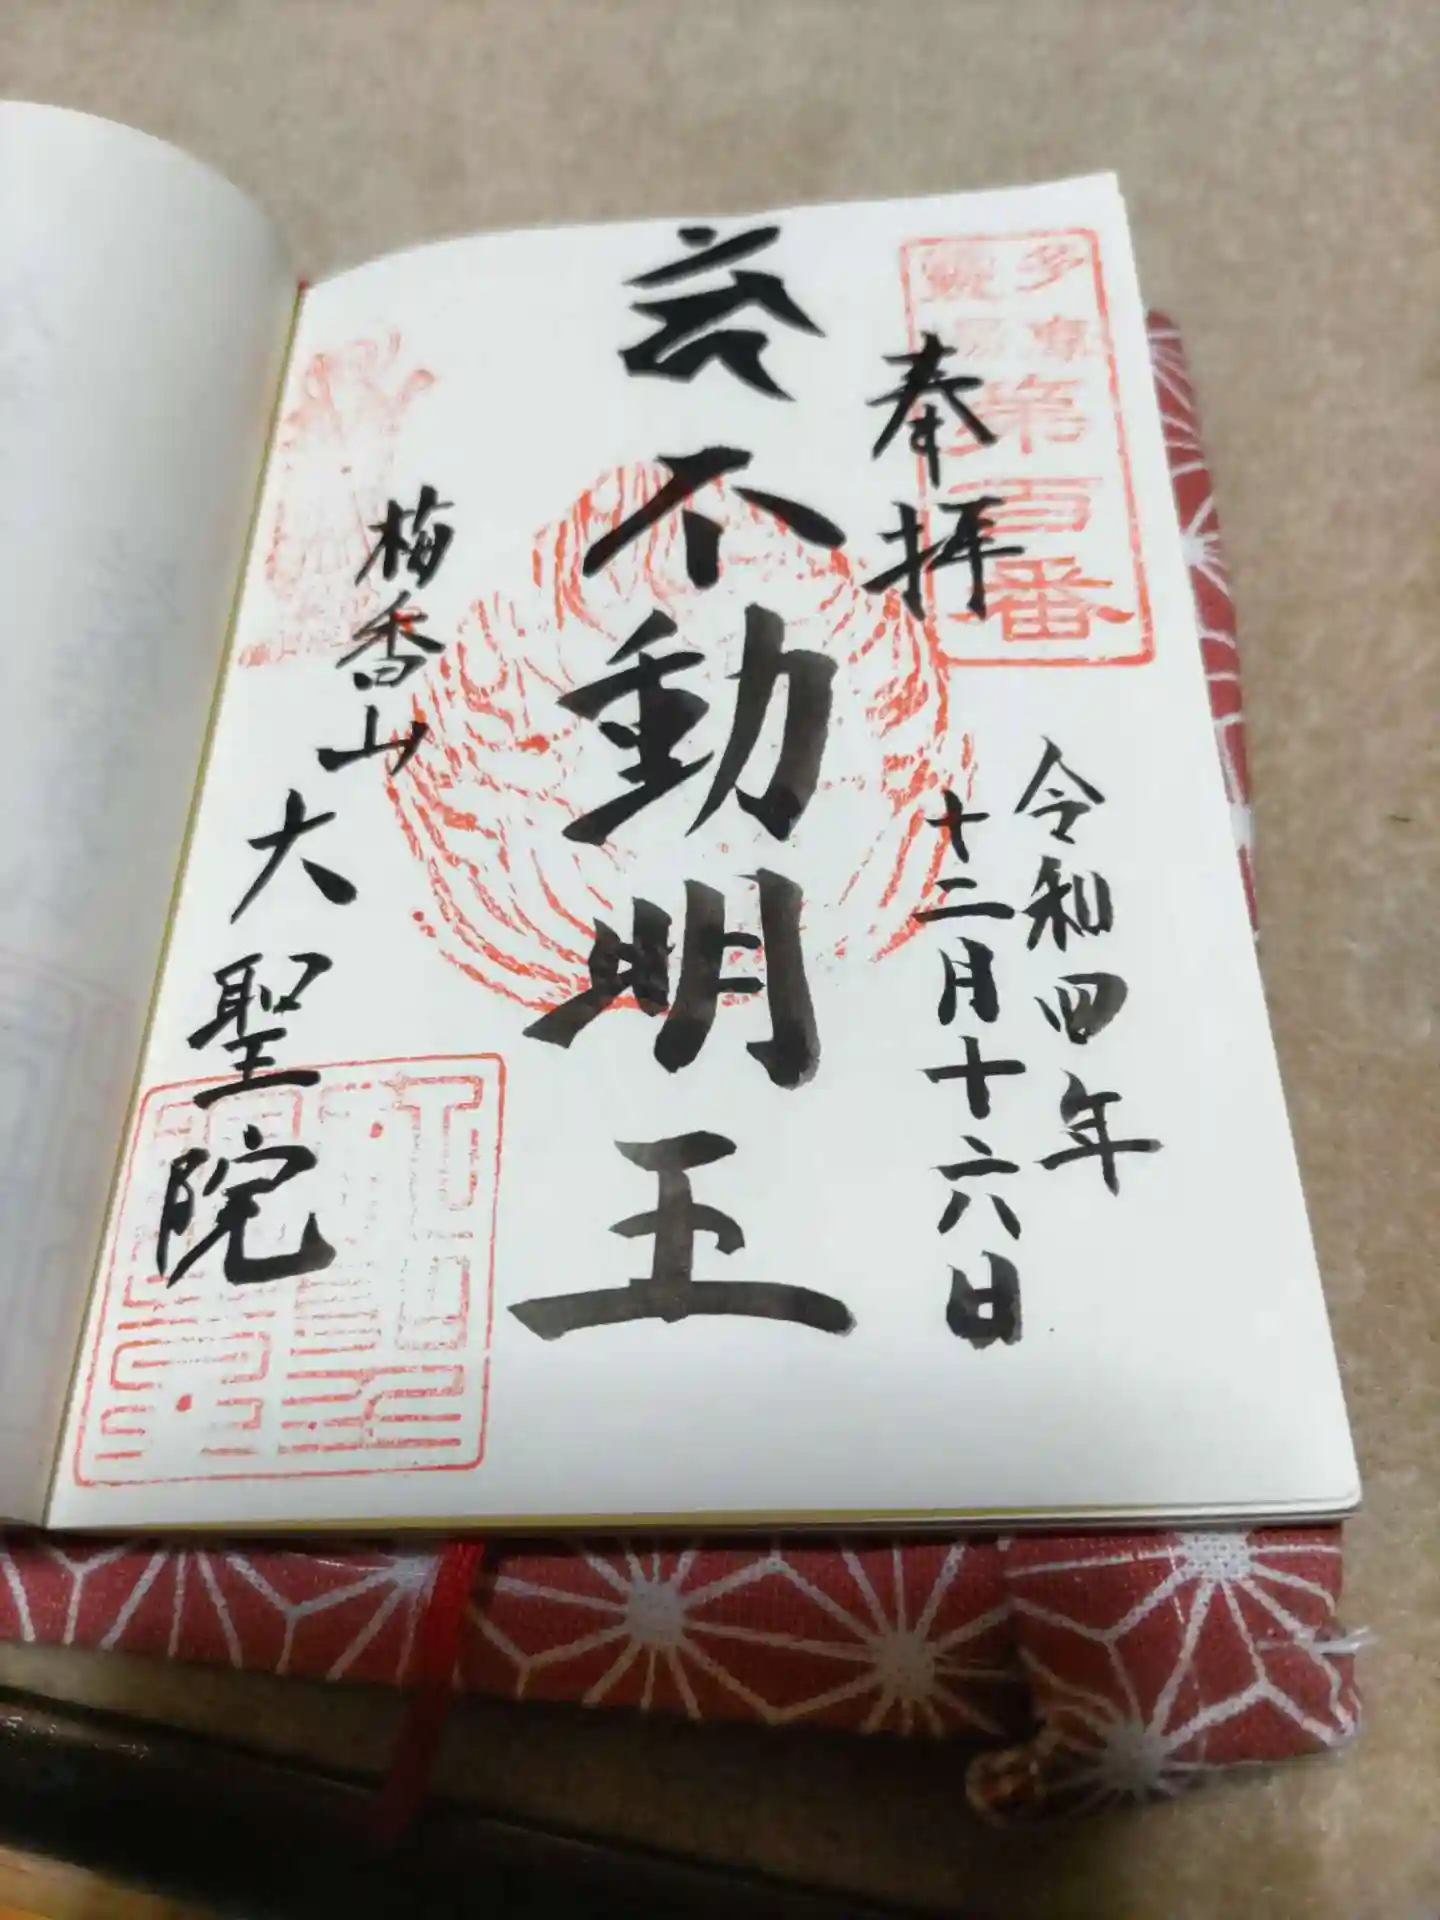 多摩
霊場
第百番
奉拝
令和四年
十二月十六日
不動明王
梅香山
大聖院